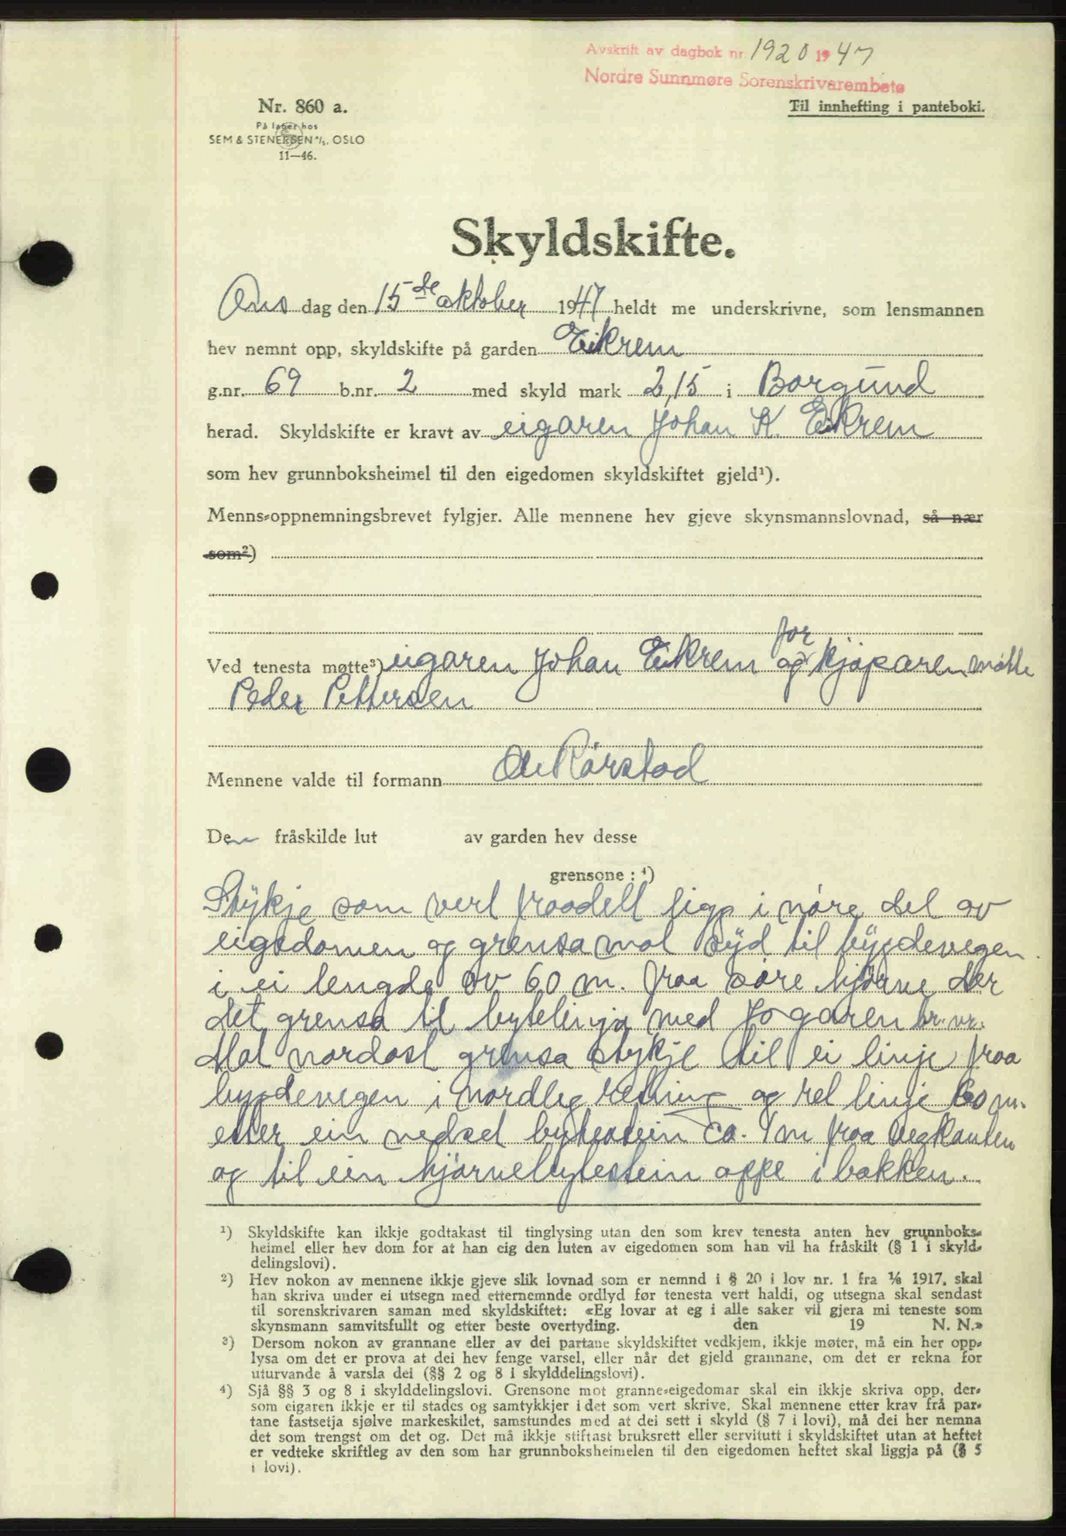 Avskrift av dagbok nr. 1920 1947
Nordre Sunnmøre Sorenskrivarembete
Nr. 860 a.
Til innhefting i panteboki.
På lager hos
SEM & STENERSEN A/S. OSLO
11—46.
Skyldskifte.
Ons dag den 15 de oktober 1947 heldt me underskrivne, som lensmannen
hev nemnt opp, skyldskifte på garden Eikrem
g.nr. 69 b.nr. 2 med skyld mark 2,15 i Borgund
herad. Skyldskifte er kravt av eigaren Johan K. Eikrem
som hev grunnboksheimel til den eigedomen skyldskiftet gjeld¹).
Menns-oppnemningsbrevet fylgjer. Alle mennene hev gjeve skynsmannslovnad, så nær
som²)
Ved tenesta møtte³) eigaren Johan Eikrem og for kjøparen møtte
Peder Pettersen
Mennene valde til formann Ole Rørstad
Den fråskilde lut av garden hev desse
grensone: ⁴)
Stykje som vert fraadelt ligg i nøre del av
eigedomen og grensa mot syd til bygdevegen
i ei lengde av 60 m. fraa søre hjørne der
det grensa til bytelinja med Jogaren br. nr.
Mot nordost grensa stykje til ei linje fraa
bygdevegen i nordleg retning og rel linje 60 m.
etter ein nedset bytestein ca. 1 m fraa vegkanten
og til ein hjørnebytestein oppe i bakken.
¹) Skyldskifte kan ikkje godtakast til tinglysing utan den som krev tenesta anten hev grunnboks-
heimel eller hev dom for at han eig den luten av eigedomen som han vil ha fråskilt (§ 1 i skyld-
delingslovi).
²) Hev nokon av mennene ikkje gjeve slik lovnad som er nemnd i § 20 i lov nr. 1 fra ⅙ 1917, skal
han skriva under ei utsegn med etternemnde ordlyd før tenesta vert haldi, og utsegna skal sendast
til sorenskrivaren saman med skyldskiftet: «Eg lovar at eg i alle saker vil gjera mi teneste som
skynsmann samvitsfullt og etter beste overtyding. den 19 N. N.»
³) Dersom nokon av grannane eller av dei partane skyldskiftet vedkjem, ikkje møter, må ein her opp-
lysa om det er prova at dei hev fenge varsel, eller når det gjeld grannane, om det er rekna for
uturvande å varsla dei (§§ 2 og 8 i skylddelingslovi).
⁴) Sjå §§ 3 og 8 i skylddelingslovi. Grensone mot granne-eigedomar skal ein ikkje skriva opp, der-
som eigaren ikkje er til stades og samtykkjer i det som vert skrive. Skal mennene etter krav frå par-
tane fastsetja sjølve markeskilet, samstundes med at dei sett i skyld (§ 7 i lovi), må dei her nemna
det som trengst om det og. Det må ikkje stiftast bruksrett eller servitutt i skyldskiftet utan at heftet
er vedteke skriftleg av den som har grunnboksheimelen til den eigedomen heftet skal liggja på (§ 5
i lovi).